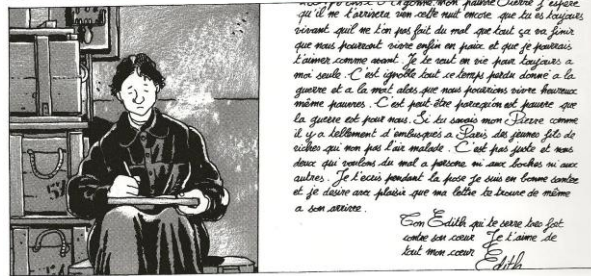 mon pauvre Pierre j'espère
qu'il ne t'arrivera rien cette nuit encore que tu es toujours
vivant qu'il ne t'on pas fait du mal que tout ça va finir
que nous pourront vivre enfin en paix et que je pourrais
t'aimer comme avant. Je te veut en vie pour toujours a
moi seule. C'est ignoble tout ce temps perdu donné a la
guerre et a la mort alors que nous pourrions vivre heureux
même pauvres. C'est peut être parcequ'on est pauvre que
la guerre est pour nous. Si tu savais mon Pierre comme
il y a tellement d'embusqués a Paris des jeunes fils de
riches qui non pas l'air malade. C'est pas juste et nous
deux qui voulons du mal a persone ni aux boches ni aux
autres. Je t'ecris pendant la pose je suis en bonne santee
et je desire avec plaisir que ma lettre te trouve de même
a son arrivee.
Ton Edith qui te serre tres fort
contre son cœur Je t'aime de
tout mon cœur
Edith